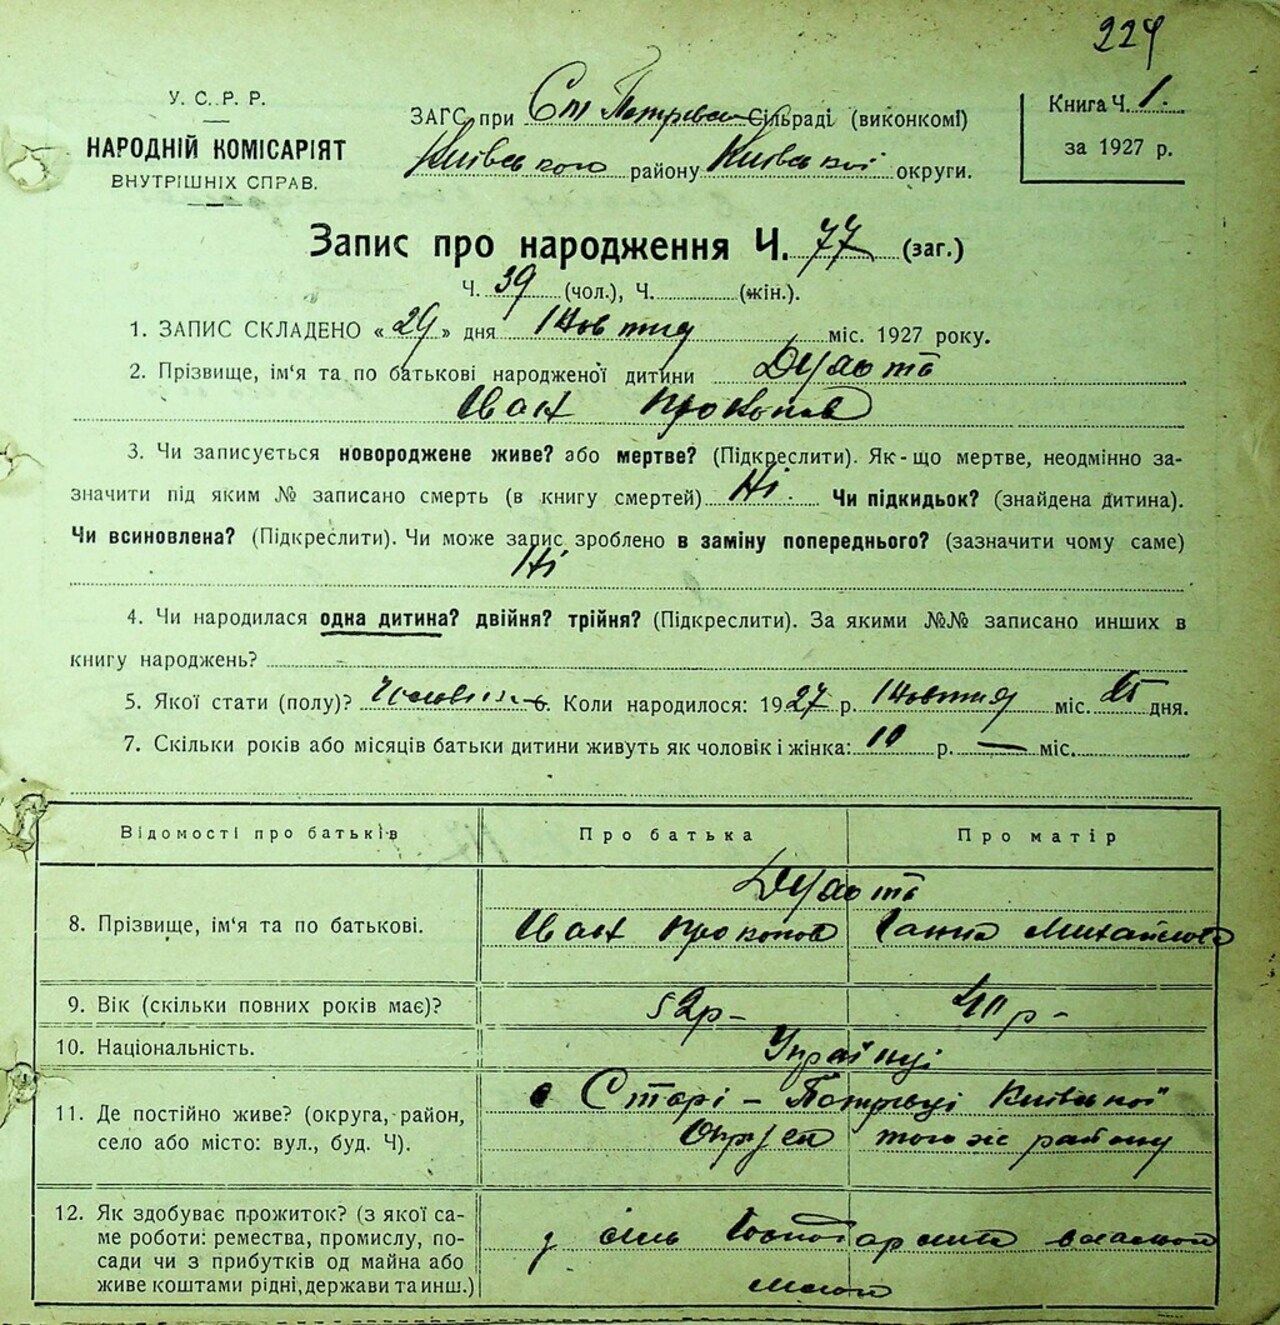 224
У. С. Р. Р.
НАРОДНІЙ КОМІСАРІЯТ
ВНУТРІШНІХ СПРАВ.
ЗАГС при Ст Петрівськ Сільраді (виконкомі)
Київського району Київської округи.
Книга Ч. 1.
за 1927 р.
Запис про народження Ч. 77 (заг.)
Ч. 39 (чол.), Ч. (жін.).
1. ЗАПИС СКЛАДЕНО « 29 » дня Жовтня міс. 1927 року.
2. Прізвище, ім'я та по батькові народженої дитини
Іван Прокопов
3. Чи записується новороджене живе? або мертве? (Підкреслити). Як-що мертве, неодмінно за-
значити під яким № записано смерть (в книгу смертей) Ні. Чи підкидьок? (знайдена дитина).
Чи всиновлена? (Підкреслити). Чи може запис зроблено в заміну попереднього? (зазначити чому саме)
Ні
4. Чи народилася одна дитина? двійня? трійня? (Підкреслити). За якими №№ записано инших в
книгу народжень?
5. Якої стати (полу)? Коли народилося: 1927 р. Жовтня міс. 25 дня.
7. Скільки років або місяців батьки дитини живуть як чоловік і жінка: 10 р. — міс.
Відомості про батьків Про батька Про матір
8. Прізвище, ім'я та по батькові.
Іван Прокопов Ганна Михайлова
9. Вік (скільки повних років має)? 52р - 40 р -
10. Національність. Українці
11. Де постійно живе? (округа, район,
село або місто: вул., буд. Ч).
с Старі - Петрівці Київської
Округи того ж району
12. Як здобуває прожиток? (з якої са-
ме роботи: ремества, промислу, по-
сади чи з прибутків од майна або
живе коштами рідні, держави та инш.)
у сіль господарстві власної